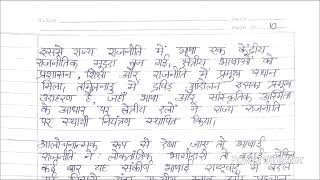 DATE
PAGE 10
इससे राज्य राजनीति में भाषा एक केंद्रीय
राजनीतिक मुद्दा बन गई। क्षेत्रीय भाषाओं को
प्रशासन, शिक्षा और राजनीति में प्रमुख स्थान
मिला। तमिलनाडु में द्रविड़ आंदोलन इसका प्रमुख
उदाहरण है, जहाँ भाषा और सांस्कृतिक अस्मिता
के आधार पर क्षेत्रीय दलों ने राज्य राजनीति
पर स्थायी नियंत्रण स्थापित किया।
आलोचनात्मक रूप से देखा जाए तो भाषाई
राजनीति ने लोकतांत्रिक भागीदारी तो
कई बार यह संकीर्ण भाषाई राष्ट्रवाद में बदल